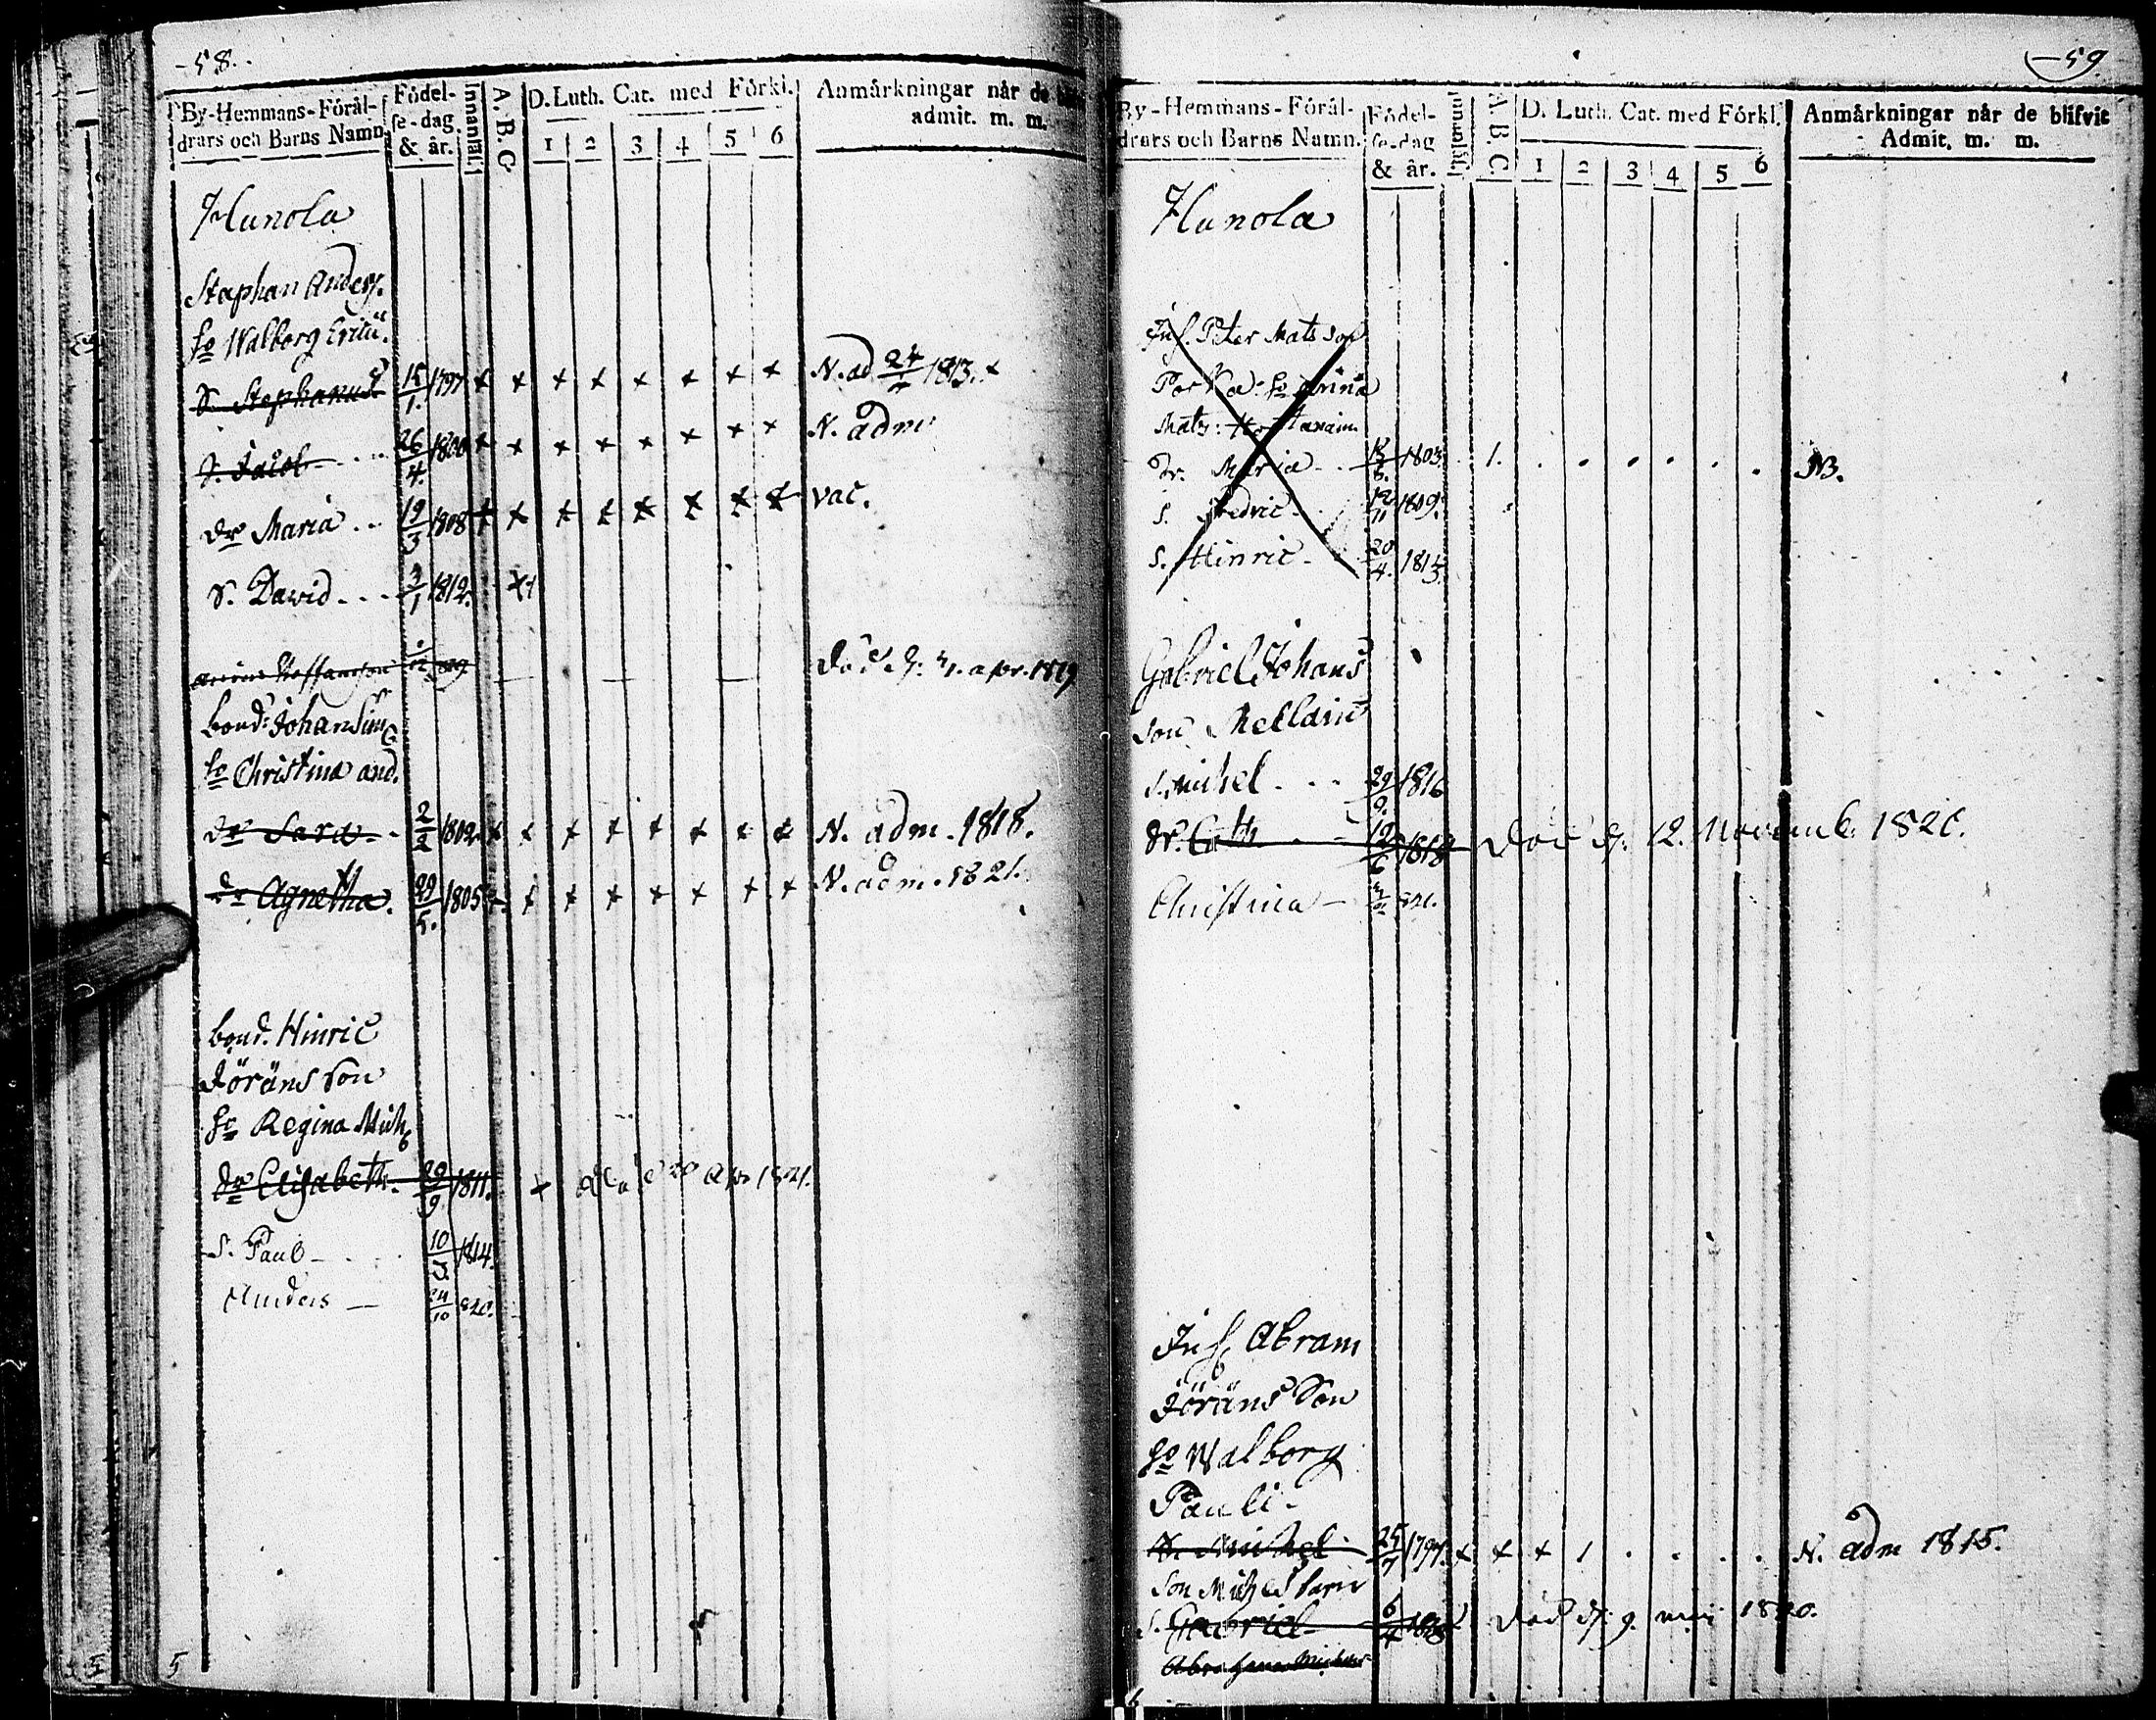 -58.
By-Hemmans-Föräl-
drars och Barns Namn
Födel-
se-dag
& år.
Innantil.
A. B. C
D. Luth. Cat. med Förkl.
1 2 3 4 5 6
Anmärkningar når de
admit. m. m.
Hunola
Staphan Anders.
Walborg Erici.
S. Stephanus 15/1. 1797 x x x x x x x x N. ad 24/ 1813. x
S. Jacob 26/4. 1800 x x x x x x x x N. adm
dr Maria 19/3 1808 x x x x x x x x vac.
S. David 1812.
död d. apr. 1819
bond: Johan Sim
Christina and.
dr Sara 2/2 1802. x x x x x x x x N. adm. 1818.
dr Agnetha. 29/5. 1805 x x x x x x x x N. adm. 1821.
bond. Hinric
Jöräns Son
Regina Mich
dr Elisabeth. 29/9 1811. x 1821.
S. Paul 10/5. 1814.
Anders 24/10 820.
5
-59.
By-Hemmans-Föräl-
drars och Barns Namn.
Födel-
se-dag
& år.
A. B. C
D. Luth. Cat. med Förkl.
1 2 3 4 5 6
Anmärkningar når de blifvit
Admit. m. m.
Hunola
Inh. Peter Mats son
Mats:
dr. Maria 1803. 1. NB.
S. Fredric 12/11 1809.
S. Hinric 20/4. 1813.
Gabriel Johans
son Mellain
S. Mihel 29/9. 1816
dr. Cath 12/6 1818 Död d. 12. Novemb. 1820.
Christina 821.
Inh. Abram
Jöräns Son
Walborg
Pauli
S. Michel 25/7 1797. x x x 1 N. adm 1815.
son Michels barn
S. Gabriel 6/4 1818 död d. 9. maj 1820.
Abraham